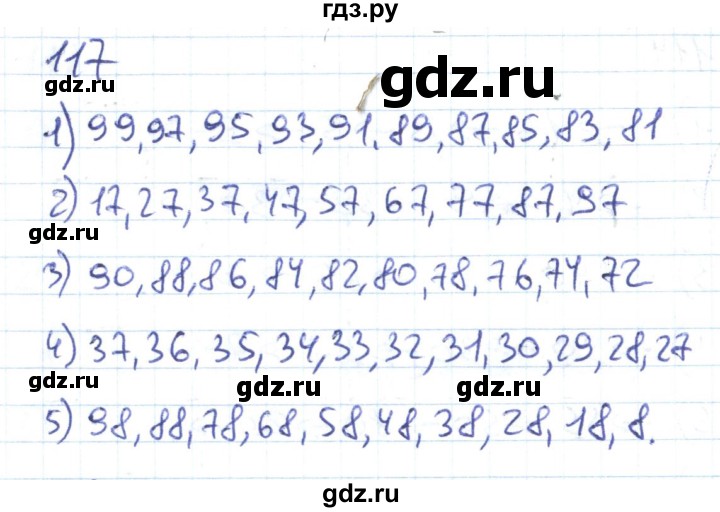 гдз.ру
117
gdz.ru
gdz.ru
1) 99, 97, 95, 93, 91, 89, 87, 85, 83, 81
2) 17, 27, 37, 47, 57, 67, 77, 87, 97
gdz.ru
3) 90, 88, 86, 84, 82, 80, 78, 76, 74, 72
4) 37, 36, 35, 34, 33, 32, 31, 30, 29, 28, 27
gdz.ru
gdz.ru
gdz.ru
5) 98, 88, 78, 68, 58, 48, 38, 28, 18, 8.
gdz.ru